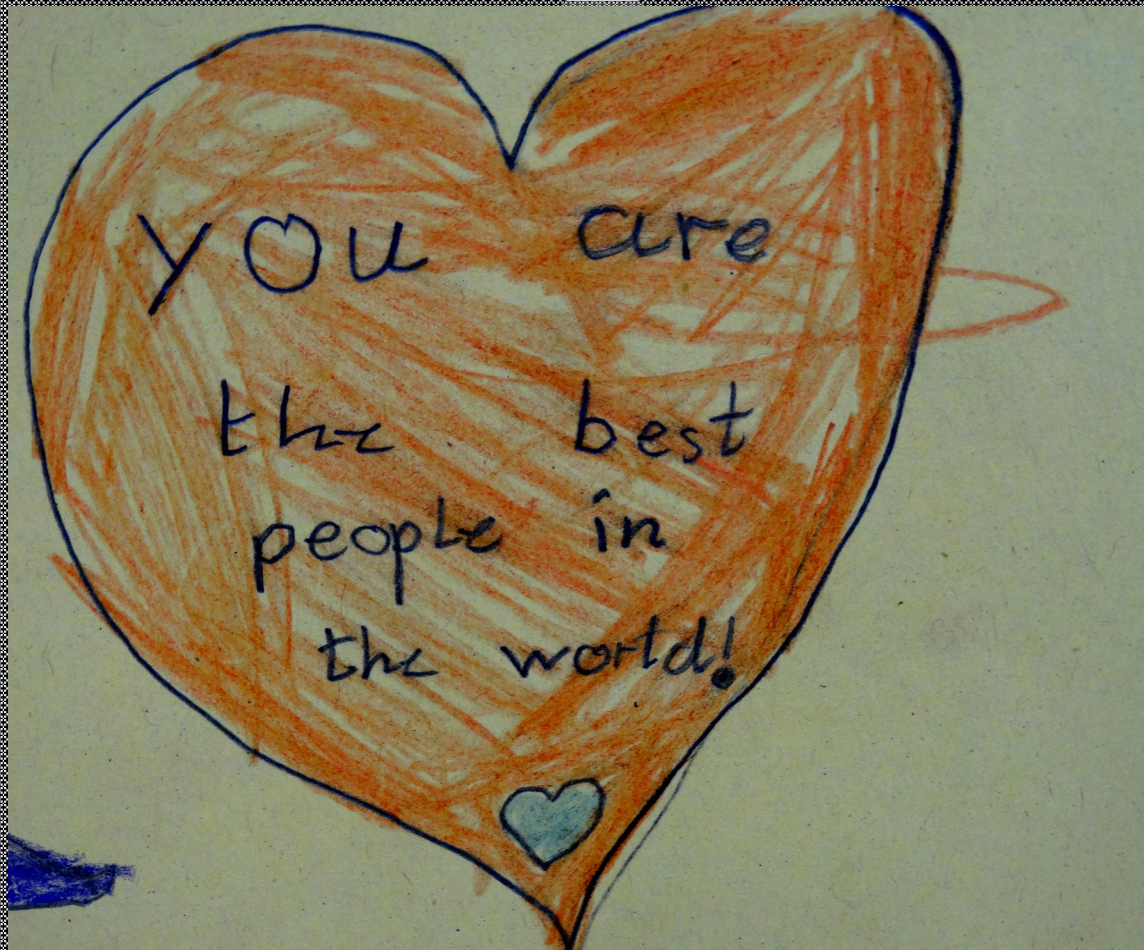 you are
the best
people in
the world!